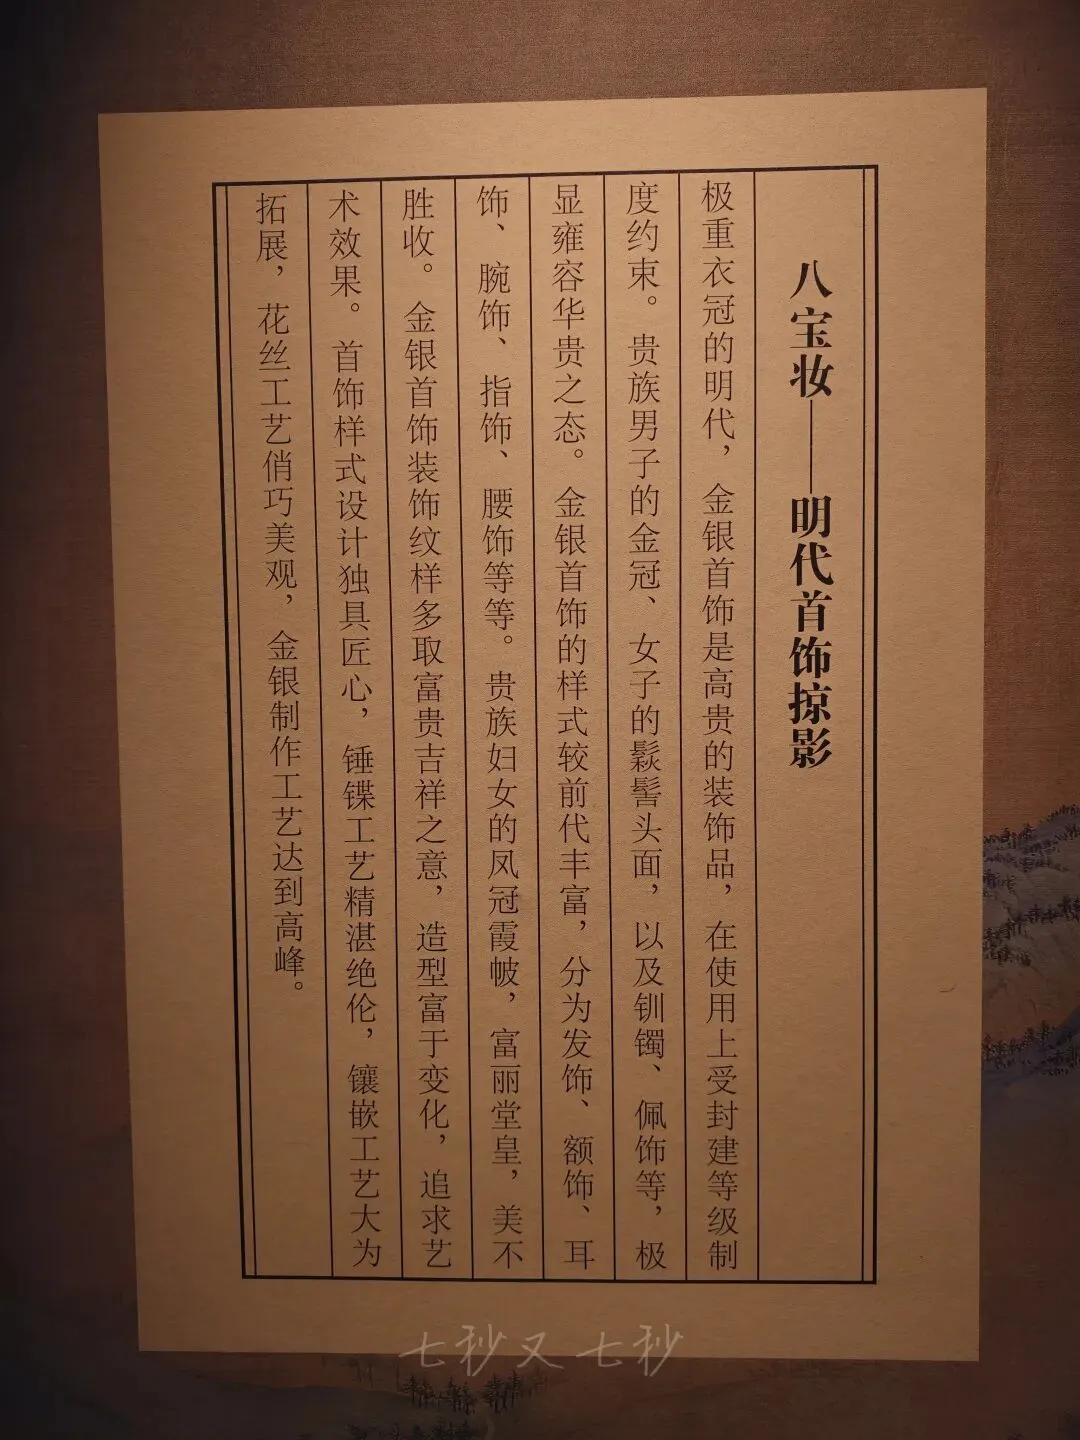 八宝妆——明代首饰掠影
极重衣冠的明代，金银首饰是高贵的装饰品，在使用上受封建等级制
度约束。贵族男子的金冠、女子的鬏髻头面，以及钏镯、佩饰等，极
显雍容华贵之态。金银首饰的样式较前代丰富，分为发饰、额饰、耳
饰、腕饰、指饰、腰饰等等。贵族妇女的凤冠霞帔，富丽堂皇，美不
胜收。金银首饰装饰纹样多取富贵吉祥之意，造型富于变化，追求艺
术效果。首饰样式设计独具匠心，锤鍱工艺精湛绝伦，镶嵌工艺大为
拓展，花丝工艺俏巧美观，金银制作工艺达到高峰。
七秒又七秒